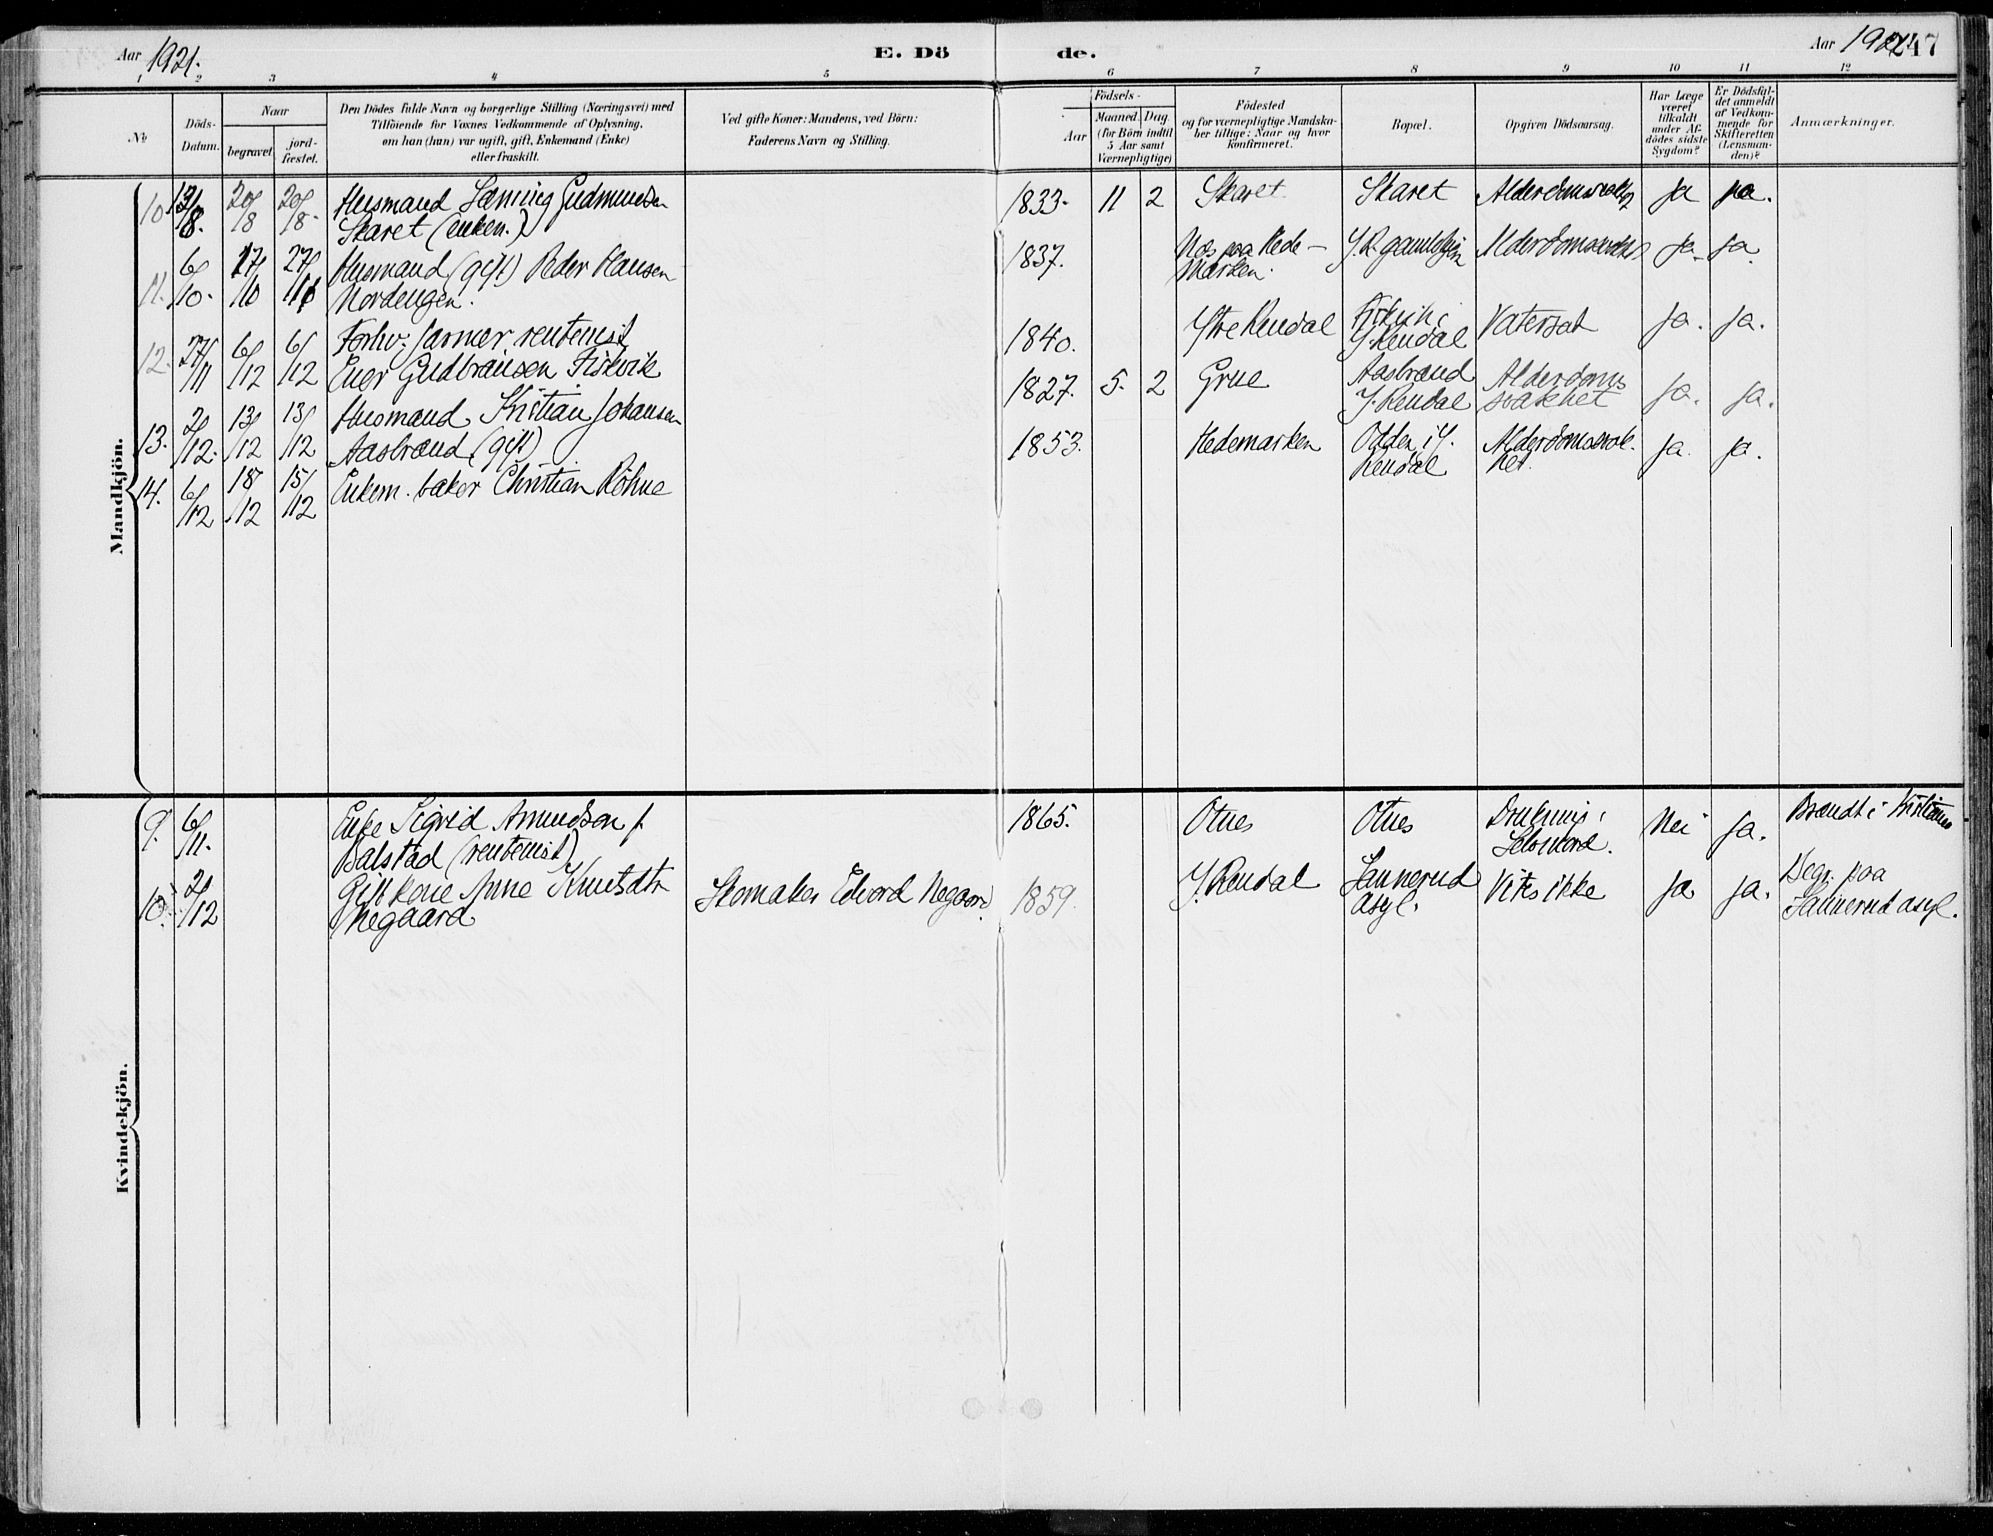 Aar 1921.
E. Dö
de.
Aar 1921.
247
1 2 3 4 5 6 7 8 9 10 11 12
No.
Döds-
Datum.
Naar
begravet.
jord-
fæstet.
Den Dödes fulde Navn og borgerlige Stilling (Næringsvei) med
Tilföiende for Voxnes Vedkommende af Oplysning,
om han (hun) var ugift, gift, Enkemand (Enke)
eller fraskilt.
Ved gifte Koner: Mandens, ved Börn:
Faderens Navn og Stilling.
Födsels-
Aar
Maaned. Dag.
(for Börn indtil
5 Aar samt
Værnepligtige)
Födested
og for værnepligtige Mandska-
ber tillige: Naar og hvor
konfirmeret.
Bopæl.
Opgiven Dödsaarsag.
Har Læge
været
tilkaldt
under Af-
dödes sidste
Sygdom?
Er Dödsfal-
det anmeldt
af Vedkom-
mende for
Skifteretten
(Lensman-
den)?
Anmærkninger.
Mandkjön.
10 13/8. 20/8 20/8. Husmand Læming Gudmundsen
Skaret (enkem.)
1833. 11 2 Skaret. Skaret Ja ja.
11. 6/10. 17/10 27/11 Husmand (gift) Peder Hansen
Nordengen.
1837. Nes paa Hede-
marken.
Ja. Ja.
12. 27/11 6/12 6/12 Forhv. farmer, rentenist
Ener Gudbransen Fiskvik
1840. Ytre Rendal Fiskvik i
Y. Rendal Vatersot Ja. Ja.
13. 2/12. 13/12 13/12 Husmand Kristian Johansen
Aasbrænd (gift)
1827. 5. 2 Grue Aasbrænd
Y. Rendal Alderdoms
svakhet Ja. Ja.
14. 6/12 18/12 15/12 Enkem. baker Christian Röhne
1853. Hedemarken Odden i Y.
Rendal Alderdomssvak-
het. Ja. Ja.
Kvindekjön.
9. 6/11. Enke Sigrid Amundson f.
Balstad (rentenist)
1865. Otnes Otnes Drukning i
Nei Ja. Brændt i Kristiania
10. 2/12 Gift kone Anne Knutsdtr
Negaard
Skomaker Edvard Negaard.
1859. Y. Rendal Sannerud
asyl. Vites ikke Ja Ja. Begr. paa
Sannerud asyl.